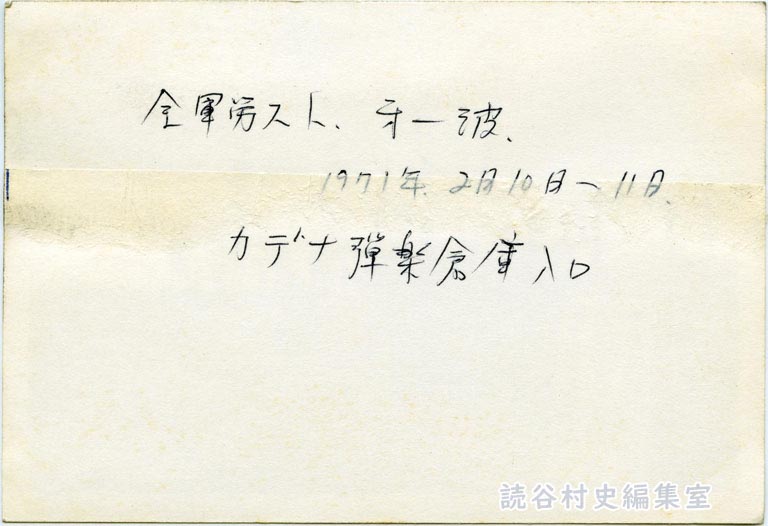 全軍労スト、第一波、
1971年、2月10日～11日、
カデナ弾薬倉庫入口
読谷村史編集室